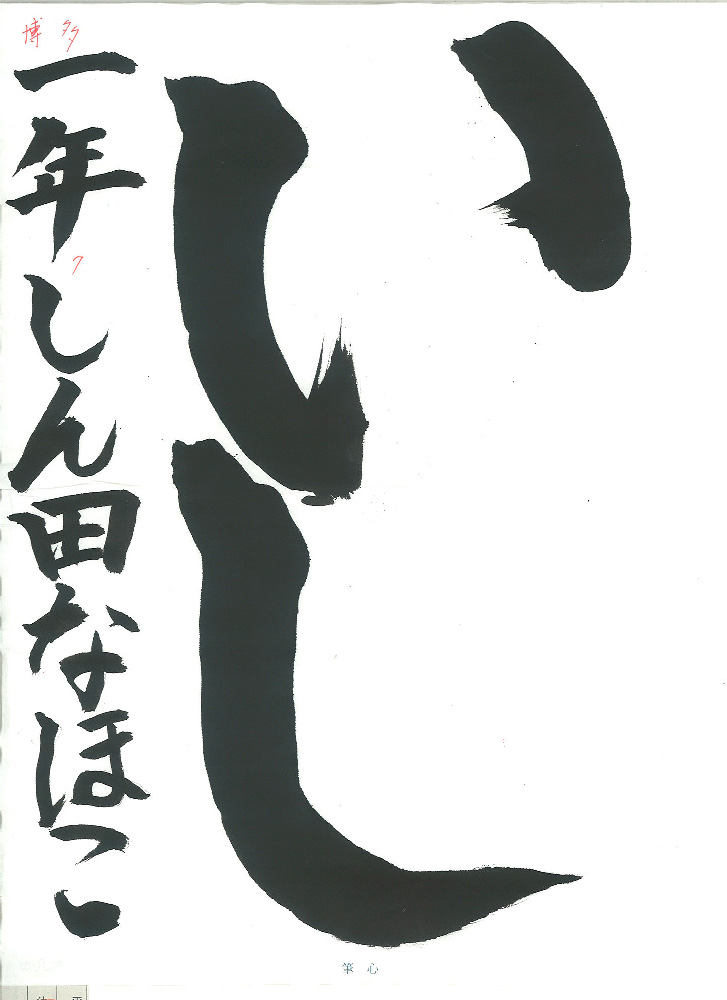 いし
一年しん田なほこ
博多
筆心